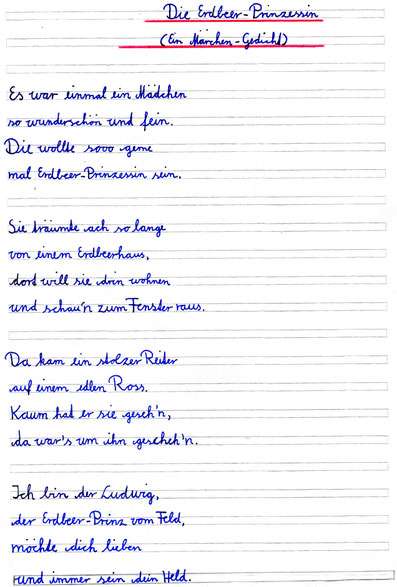 Die Erdbeer-Prinzessin
(Ein Märchen-Gedicht)
Es war einmal ein Mädchen
so wunderschön und fein.
Die wollte sooo gerne
mal Erdbeer-Prinzessin sein.
Sie träumte ach so lange
von einem Erdbeerhaus,
dort will sie drin wohnen
und schau'n zum Fenster raus.
Da kam ein stolzer Reiter
auf einem edlen Ross.
Kaum hat er sie geseh'n,
da war's um ihn gescheh'n.
Ich bin der Ludwig,
der Erdbeer-Prinz vom Feld,
möchte dich lieben
und immer sein dein Held.